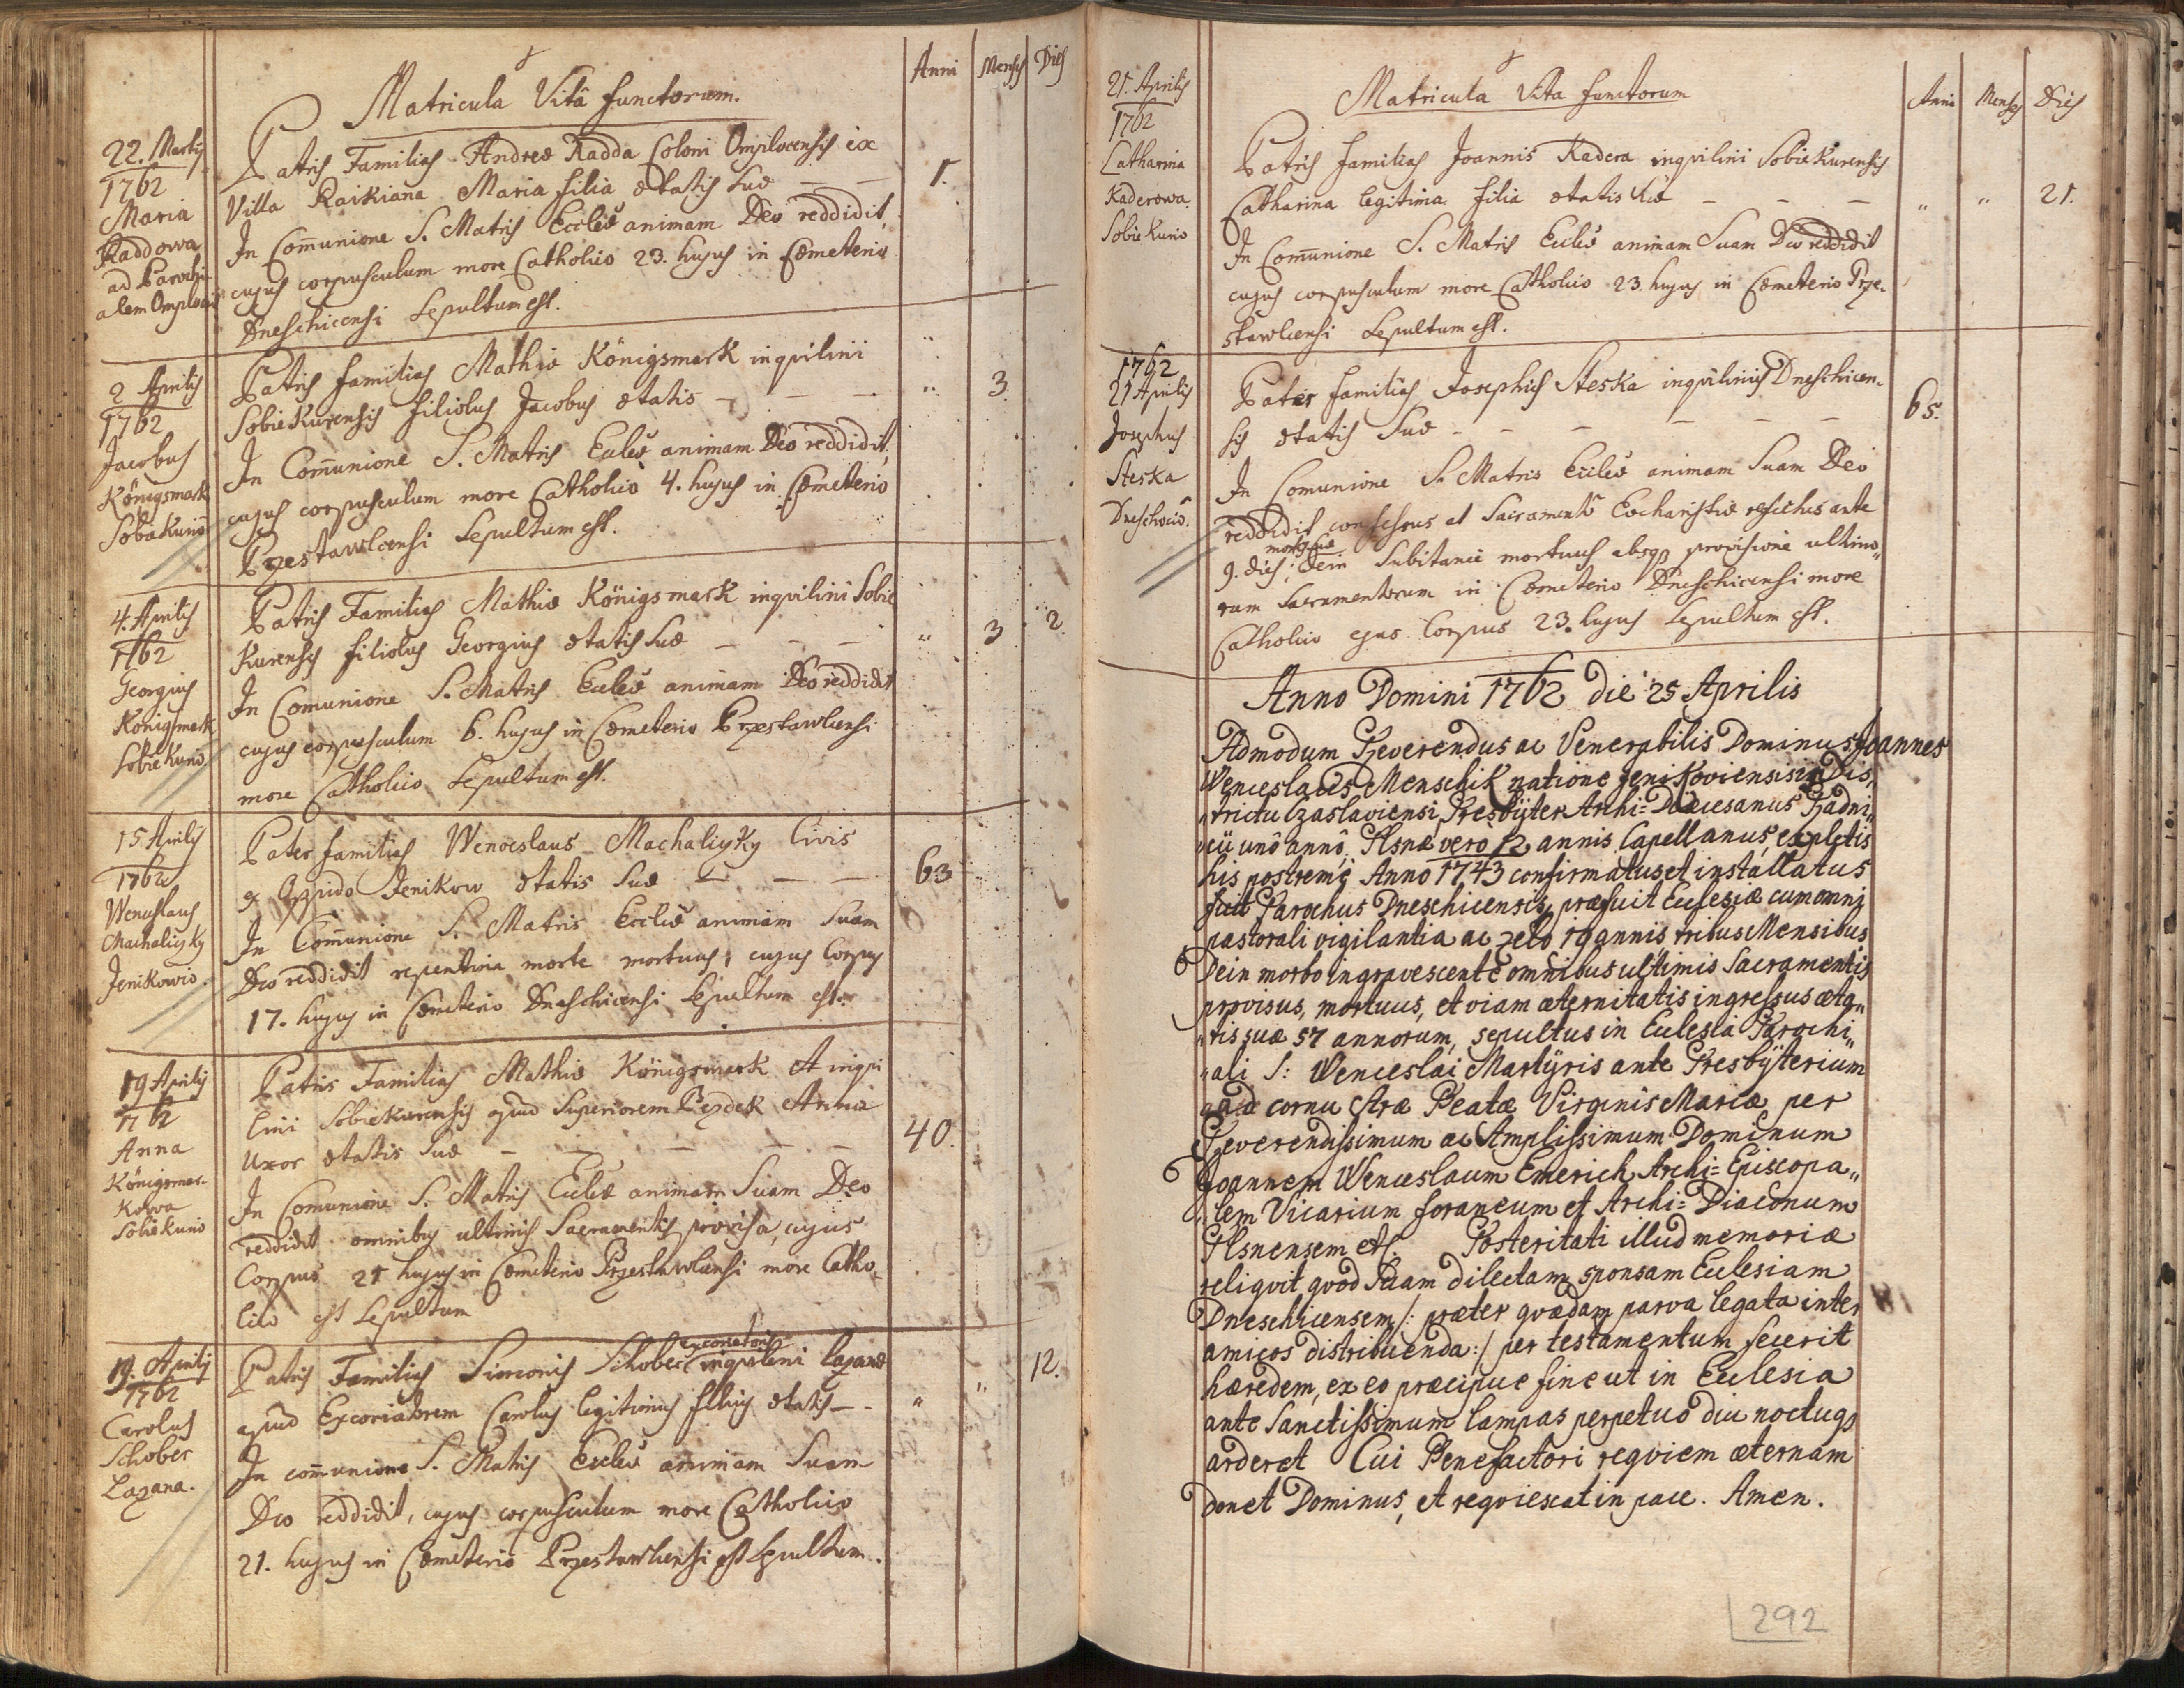 Matricula Vitä functorum.
Anni Menses Dies
22. Martij
1762
Maria
Raddowa
ad Parochi-
alem
Patris Familias Andreæ Radda Coloni Omplocensis ex
Villa Raikiana Maria filia ætatis suæ — — 1.
In Com̄unione S. Matris Eccliæ animam Deo reddidit,
cujus corpusculum more Catholico 23. hujus in Cœmeterio
Dneschicensi Sepultum est.
2 Aprilis
1762
Jacobus
Königsmark
Patris familias Mathiæ Königsmark inqvilini
Sobiekurensis filiolus Jacobus ætatis — — — " 3
In Com̄unione S. Matris Eccliæ animam Deo reddidit,
cujus corpusculum more Catholico 4. hujus in Cœmeterio
Przestawlcensi Sepultum est.
4. Aprilis
1762
Georgius
Königsmark
Sobiekurio
Patris Familias Mathiæ Königsmark inqvilini Sobie
Kurensis filiolus Georgius ætatis suæ — — — " 3 2.
In Comunione S. Matris Eccliæ animam Deo reddidit
cujus corpusculum 6. hujus in Cœmeterio Przestawlcensi
more Catholico Sepultum est.
15 Aprilis
1762
Wenceslaus
Machaliczky
Jenikowio.
Pater familias Wenceslaus Machaliczky Civis
ex Oppido Jenikow ætatis suæ — — — 63
In Com̄unione S. Matris Eccliæ animam Suam
Deo reddidit repentina morte mortuus, cujus Corpus
17. hujus in Cœmeterio Dneschicensi Sepultum est.
19 Aprilis
1762
Anna
Königsmar-
kowa
Sobiekurio
Patris Familias Mathiæ Königsmark inqvi
lini Sobiekurensis apud Superiorem Anna
Uxor ætatis suæ — — — — — 40.
In Comunione S. Matris Eccliæ animam Suam Deo
reddidit omnibus ultimis Sacramentis provisa, cujus
Corpus 21 hujus in Cœmeterio Przestawlcensi more Catho-
lico est Sepultum
19. Aprilis
1762
Carolus
Schober
Lazana.
excoriatoris
Patris Familias Simeonis Schober inqvilini Lazanæ
apud Excoriatorem Carolus legitimus filius ætatis — - " " 12.
In com̄unione S. Matris Eccliæ animam Suam
Deo reddidit, cujus corpusculum more Catholico
21. hujus in Cœmeterio Przestawlcensi est Sepultum.
Matricula Vita functorum
Anni Menses Dies
21. Aprilis
1762
Catharina
Kaderowa.
Sobiekurio
Patris familias Joannis Kadera inqvilini Sobiekurensis
Catharina legitima filia ætatis suæ — — — " " 21.
In Com̄unione S. Matris Eccliæ animam Suam Deo reddidit
cujus corpusculum more Catholico 23. hujus in Cœmeterio Prze-
stawlcensi Sepultum est.
1762
21 Aprilis
Josephus
Steska
Pater familias Josephus Steska inqvilinus Dneschicen-
sis ætatis Suæ - — — — — — 65.
In Comunione S. Matris Eccliæ animam Suam Deo
reddidit confessus et Sacramento Eucharistiæ refectus ante
mortis suæ
9. dies, dein Subitanei mortuus absq provisione ultimo"
rum Sacramentorum in Cœmeterio Dneschicensi more
Catholico ejus Corpus 23. hujus Sepultum est.
Anno Domini 1762 die 25 Aprilis
Admodum Reverendus ac Venerabilis Dominus Joannes
Wenceslaus Menschik natione Jenikoviensis in Dis"
"trictu Czaslaviensi, Presbÿter Archi=Diœcesanus Radni"
"cii unô annô, Plsnæ vero 12 annis Capellanus, expletis
his postremè Anno 1743 confirmatus et installatus
fuit Parochus Dneschicensis, præfuit Ecclesiæ cum omni
pastorali vigilantia ac zelo 19 annis, tribus Mensibus
Dein morbo ingravescente omnibus ultimis Sacramentis
provisus, mortuus, et viam æternitatis ingressus æta"
"tis suæ 57 annorum, sepultus in Ecclesia Parochi"
"ali S: Wenceslai Martÿris ante Presbÿterium
ad cornu Aræ Beatæ Virginis Mariæ per
Reverendissimum ac Amplissimum Dominum
Joannem Wenceslaum Emerich Archi=Episcopa"
"lem Vicarium foraneum et Archi=Diaconum
Plsnensem etc. Posteritati illud memoriæ
reliqvit qvod Suam dilectam sponsam Ecclesiam
Dneschicensem /: præter qvædam parva legata inter
amicos distribuenda :/ per testamentum fecerit
hæredem, ex eo præcipue fine ut in Ecclesia
ante Sanctissimum lampas perpetuô diu noctuq
arderet Cui Benefactori reqviem æternam
donet Dominus, et reqviescat in pace. Amen.
292